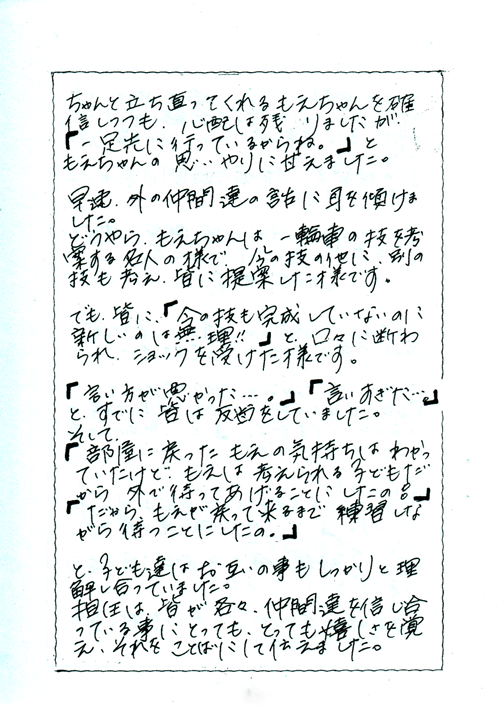 ちゃんと立ち直ってくれるもえちゃんを確
信しつつも、心配は残りましたが
「一足先に行っているからね。」と
もえちゃんの思いやりに甘えました。
早速、外の仲間達の話に耳を傾けま
した。
どうやら、もえちゃんは、一輪車の技を考
案する名人の様で、今の技の他に、別の
技も考え、皆に提案した様です。
でも、皆に、「今の技も完成していないのに
新しいのは無理!!」と、口々に断わ
られ、ショックを受けた様です。
「言い方が悪かった…。」「言いすぎた…。」
と、すでに皆は反省をしていました。
そして、
「部屋に戻ったもえの気持ちはわかっ
ていたけど、もえは考えられる子どもだ
から外で待ってあげることにしたの。」
「だから、もえが戻って来るまで練習しな
がら待つことにしたの。」
と、子ども達はお互いの事もしっかりと理
解し合っていました。
担任は、皆が各々、仲間達を信じ合
っている事にとっても、とっても嬉しさを覚
え、それをことばにして伝えました。